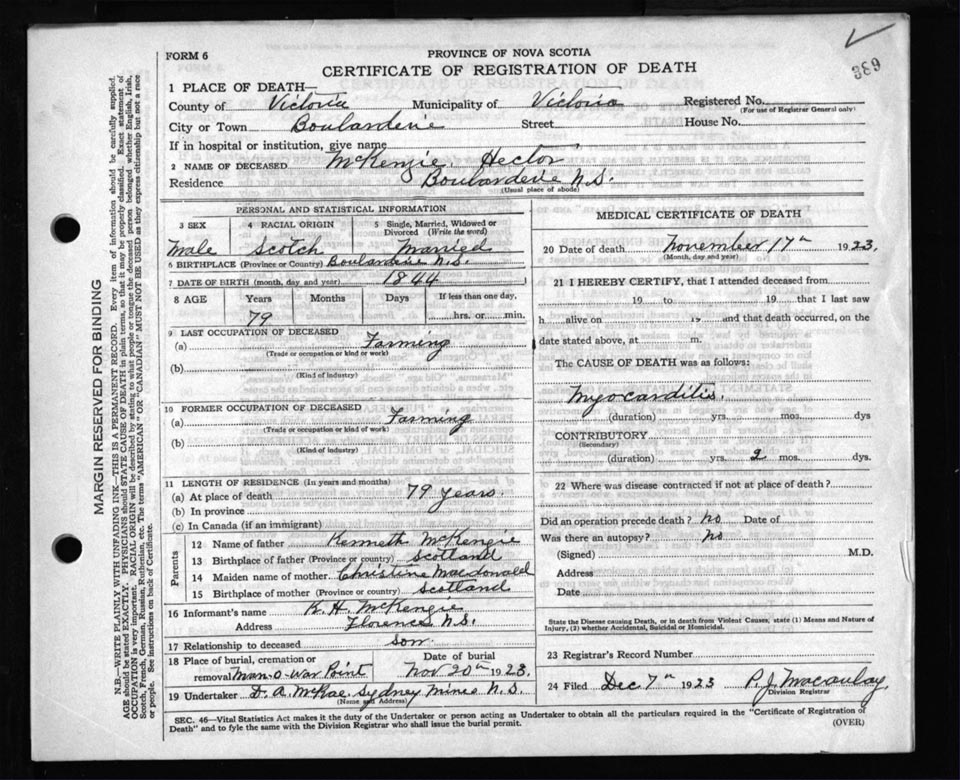 FORM 6
PROVINCE OF NOVA SCOTIA
CERTIFICATE OF REGISTRATION OF DEATH
389
1 PLACE OF DEATH—
County of Victoria Municipality of Victoria Registered No.
(For use of Registrar General only)
City or Town Boularderie Street House No.
If in hospital or institution, give name
2 NAME OF DECEASED McKenzie, Hector
Residence Boularderie N.S.
(Usual place of abode)
PERSONAL AND STATISTICAL INFORMATION
3 SEX 4 RACIAL ORIGIN 5 Single, Married, Widowed or Divorced (Write the word)
Male Scotch Married
6 BIRTHPLACE (Province or Country) Boularderie N.S.
7 DATE OF BIRTH (month, day and year) 1844
8 AGE Years Months Days If less than one day,
79 hrs. or min.
9 LAST OCCUPATION OF DECEASED
(a) Farming
(Trade or occupation or kind or work)
(b)
(Kind of industry)
10 FORMER OCCUPATION OF DECEASED
(a) Farming
(Trade or occupation or kind of work)
(b)
(Kind of industry)
11 LENGTH OF RESIDENCE (In years and months)
(a) At place of death 79 years.
(b) In province
(c) In Canada (if an immigrant)
Parents
12 Name of father Kenneth McKenzie
13 Birthplace of father (Province or country) Scotland
14 Maiden name of mother Christine Macdonald
15 Birthplace of mother (Province or country) Scotland
16 Informant's name K. H. McKenzie
Address Florence N.S.
17 Relationship to deceased son
18 Place of burial, cremation or removal Man-o-War Point Date of burial Nov 20th 1923
19 Undertaker D. A. McRae, Sydney Mines N.S.
(Name and Address)
MEDICAL CERTIFICATE OF DEATH
20 Date of death November 17th 1923.
(Month, day and year)
21 I HEREBY CERTIFY, that I attended deceased from
19 to 19 that I last saw
h alive on 19 and that death occurred, on the
date stated above, at m.
The CAUSE OF DEATH was as follows:
Myocarditis.
(duration) yrs. mos. dys
CONTRIBUTORY
(Secondary)
(duration) yrs. 2 mos. dys.
22 Where was disease contracted if not at place of death?
Did an operation precede death? no Date of
Was there an autopsy? no
(Signed) M.D.
Address
Date
State the Disease causing Death, or in death from Violent Causes, state (1) Means and Nature of
Injury, (2) whether Accidental, Suicidal or Homicidal.
23 Registrar's Record Number
24 Filed Dec 7th 1923 P. J. Macaulay
Division Registrar
SEC. 46—Vital Statistics Act makes it the duty of the Undertaker or person acting as Undertaker to obtain all the particulars required in the "Certificate of Registration of
Death" and to fyle the same with the Division Registrar who shall issue the burial permit.
(OVER)
MARGIN RESERVED FOR BINDING
N.B.—WRITE PLAINLY WITH UNFADING INK—THIS IS A PERMANENT RECORD. Every item of information should be carefully supplied.
AGE should be stated EXACTLY. PHYSICIANS should STATE CAUSE OF DEATH in plain terms, so that it may be properly classified. Exact statement of
OCCUPATION is very important. RACIAL ORIGIN will be described by stating to what people or tongue the deceased person belonged whether English, Irish,
Scotch, French, German, Russian, Ruthenian, etc. The terms "AMERICAN" OR "CANADIAN" MUST NOT BE USED as they express citizenship but not a race
or people. See instructions on back of Certificate.